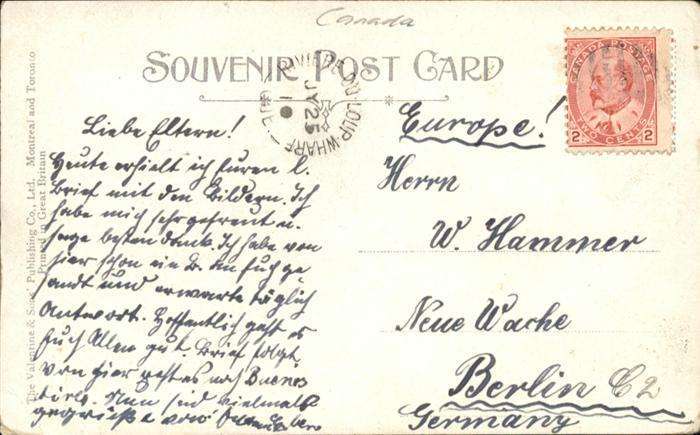 Canada
SOUVENIR POST CARD
RIVIERE DU LOUP WHARF
JY 25
10
CANADA POSTAGE
2 TWO CENTS 2
Europe!
Herrn
W. Hammer
Neue Wache
Berlin C2
Germany
Liebe Eltern!
Heute erhielt ich Euren l.
Brief mit den Bildern. Ich
habe mich sehr gefreut u.
sage besten Dank. Ich habe von
hier schon ein B. an Euch ge
sandt und erwarte täglich
Antwort. Hoffentlich geht es
Euch Allen gut. Brief folgt
von hier geht es nach Buenos
Aires. Nun seid vielmals
gegrüßt von
The Valentine & Sons Publishing Co., Ltd. Montreal and Toronto
Printed in Great Britain